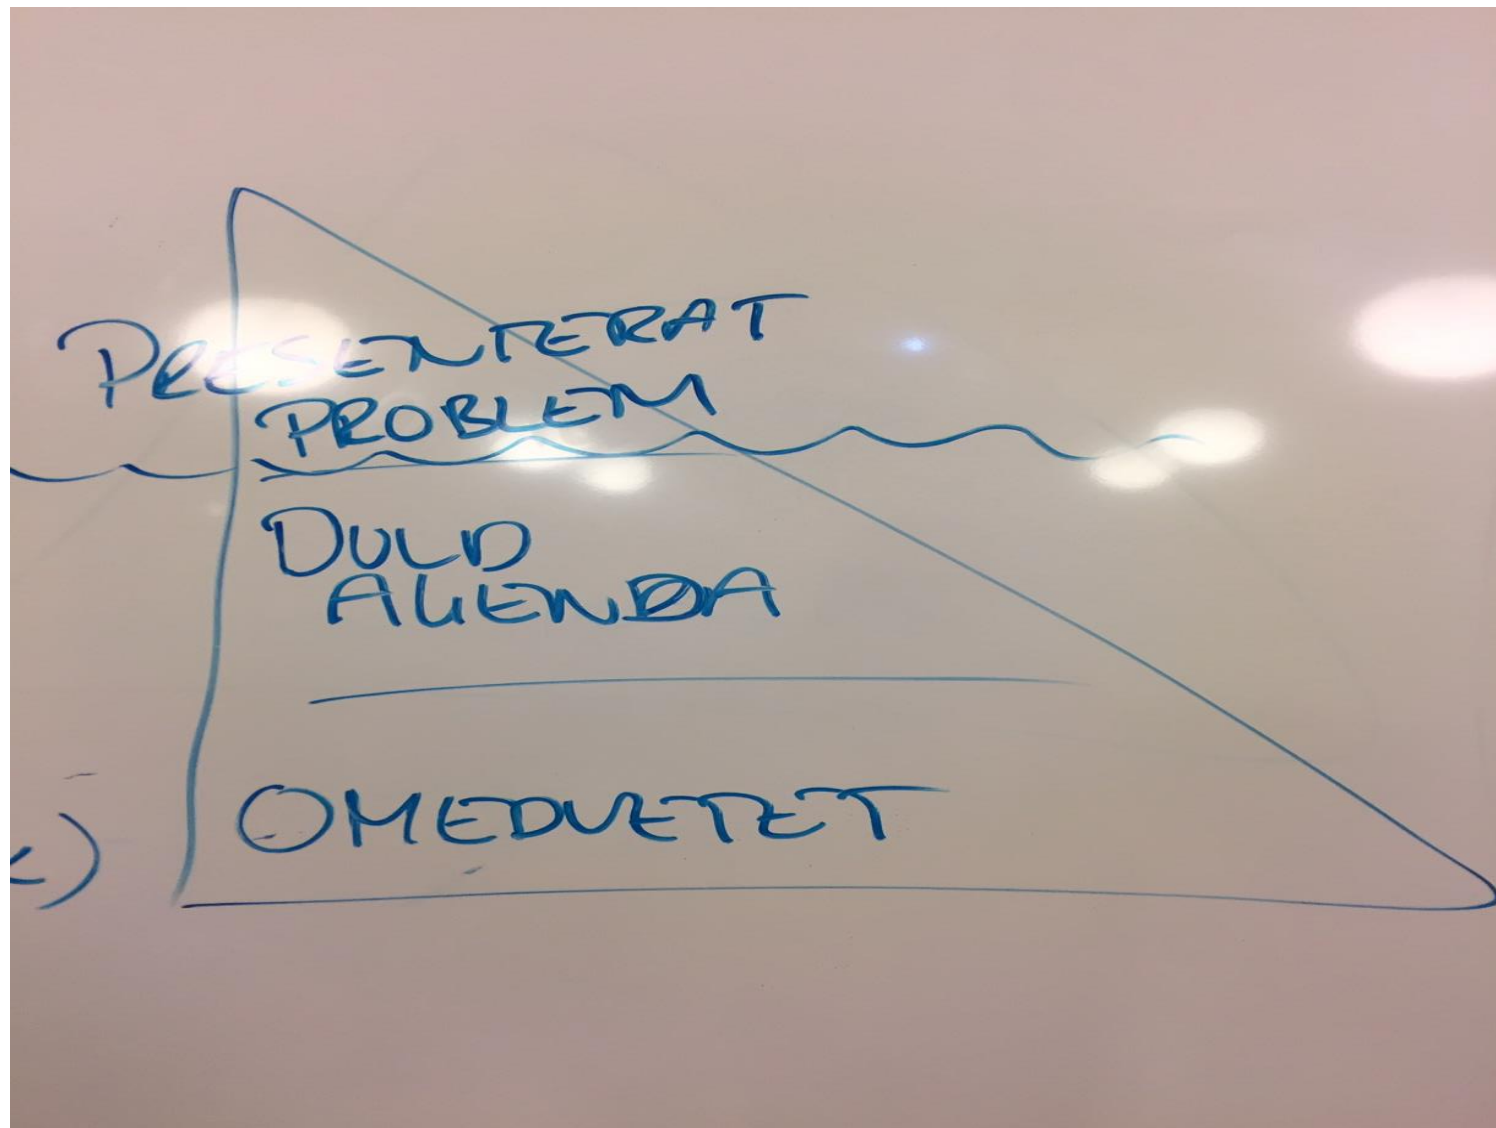 PRESENTERAT
PROBLEM
DULD
AGENDA
OMEDVETET